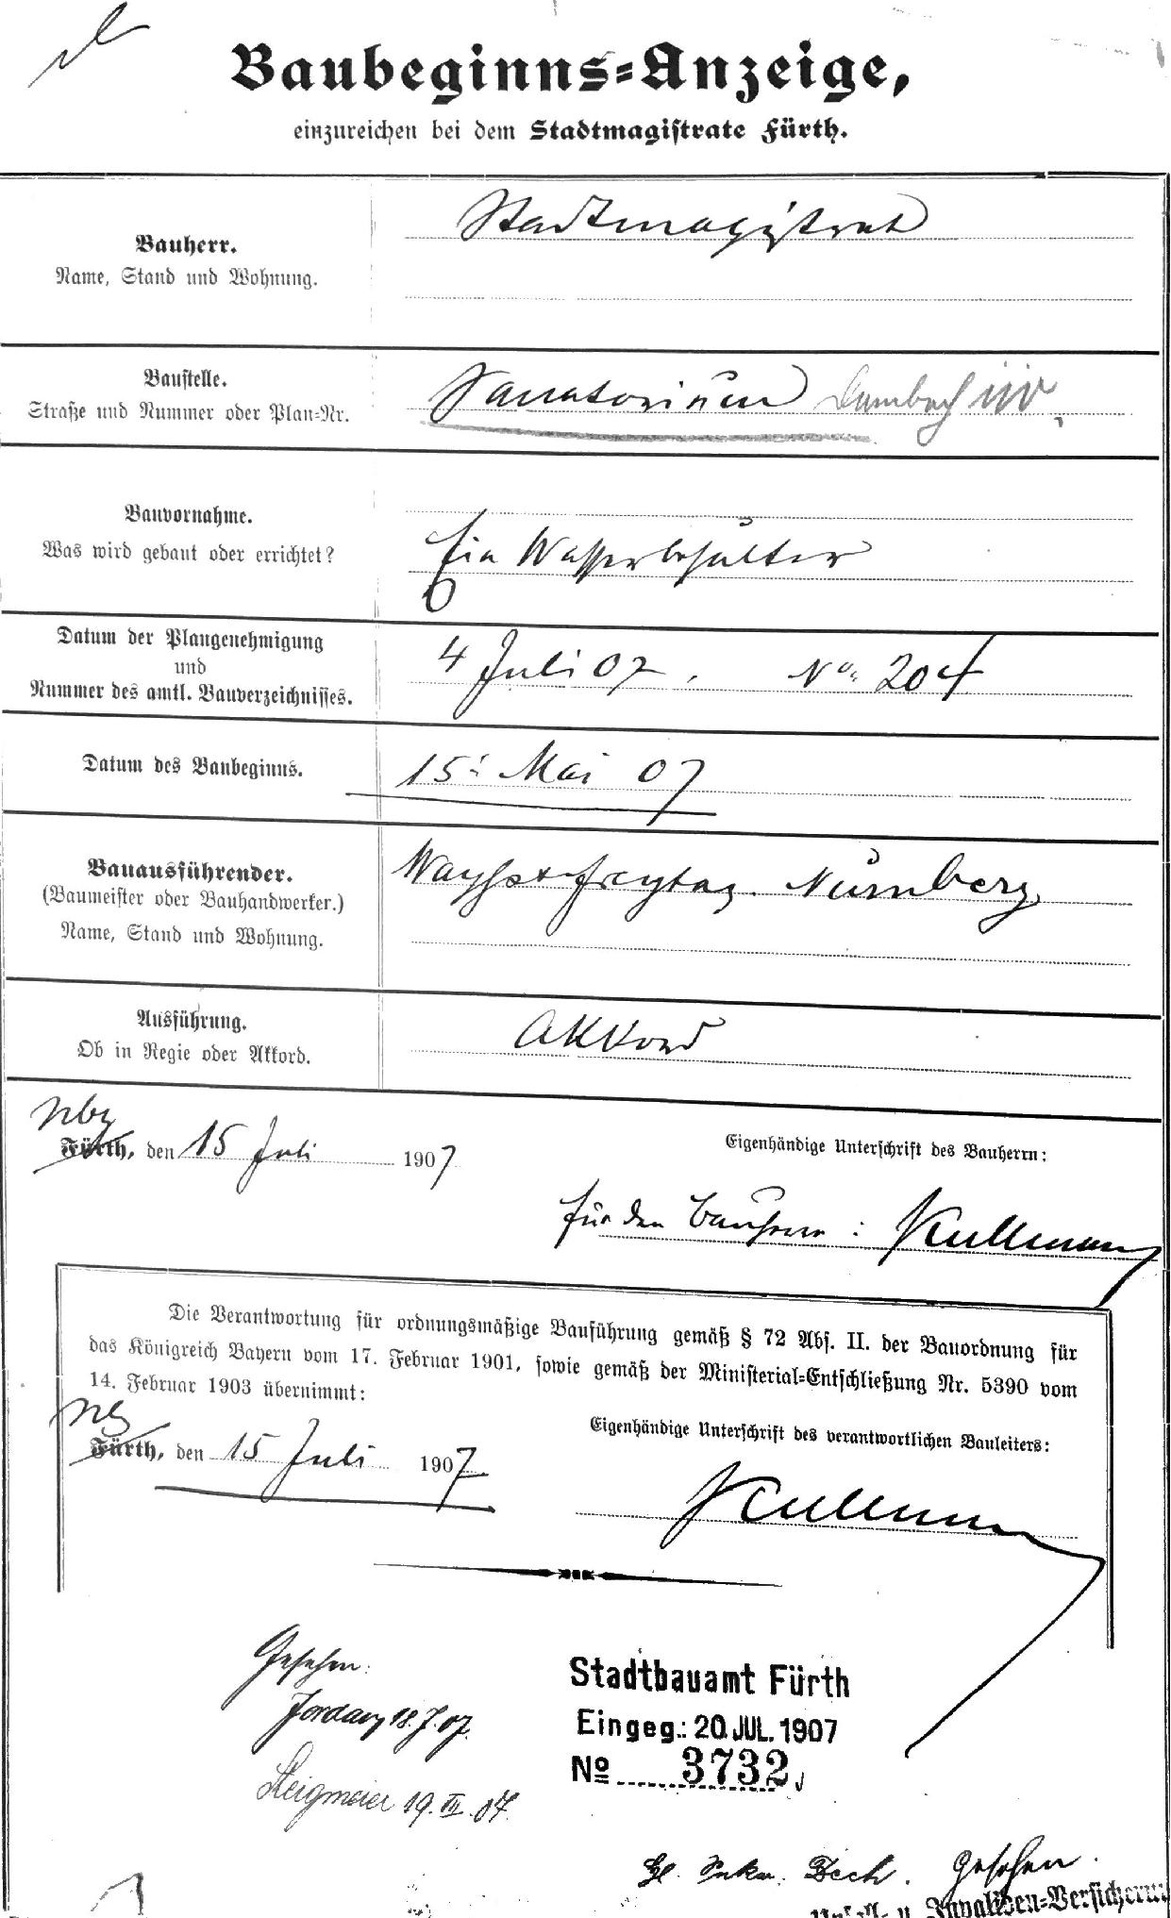 Baubeginns-Anzeige,
einzureichen bei dem Stadtmagistrate Fürth.
Bauherr.
Name, Stand und Wohnung.
Stadtmagistrat
Baustelle.
Straße und Nummer oder Plan-Nr.
Sanatorium Dambach
Bauvornahme.
Was wird gebaut oder errichtet?
Ein Wasserbehälter
Datum der Plangenehmigung
und
Nummer des amtl. Bauverzeichnisses.
4 Juli 07. No. 204
Datum des Baubeginns.
15: Mai 07
Bauausführender.
(Baumeister oder Bauhandwerker.)
Name, Stand und Wohnung.
Wayss & Freytag. Nürnberg
Ausführung.
Ob in Regie oder Akkord.
Akkord
Nbg
Fürth, den 15 Juli 1907
Eigenhändige Unterschrift des Bauherrn:
für den Bauherrn: Kullmann
Die Verantwortung für ordnungsmäßige Bauführung gemäß § 72 Abs. II. der Bauordnung für
das Königreich Bayern vom 17. Februar 1901, sowie gemäß der Ministerial-Entschließung Nr. 5390 vom
14. Februar 1903 übernimmt:
Nbg
Fürth, den 15 Juli 1907
Eigenhändige Unterschrift des verantwortlichen Bauleiters:
Kullmann
Gesehen:
18.7.07.
19. VII. 07.
Stadtbauamt Fürth
Eingeg.: 20. JUL. 1907
No 3732
Gesehen.
Unfall- u. Invaliden-Versicherung